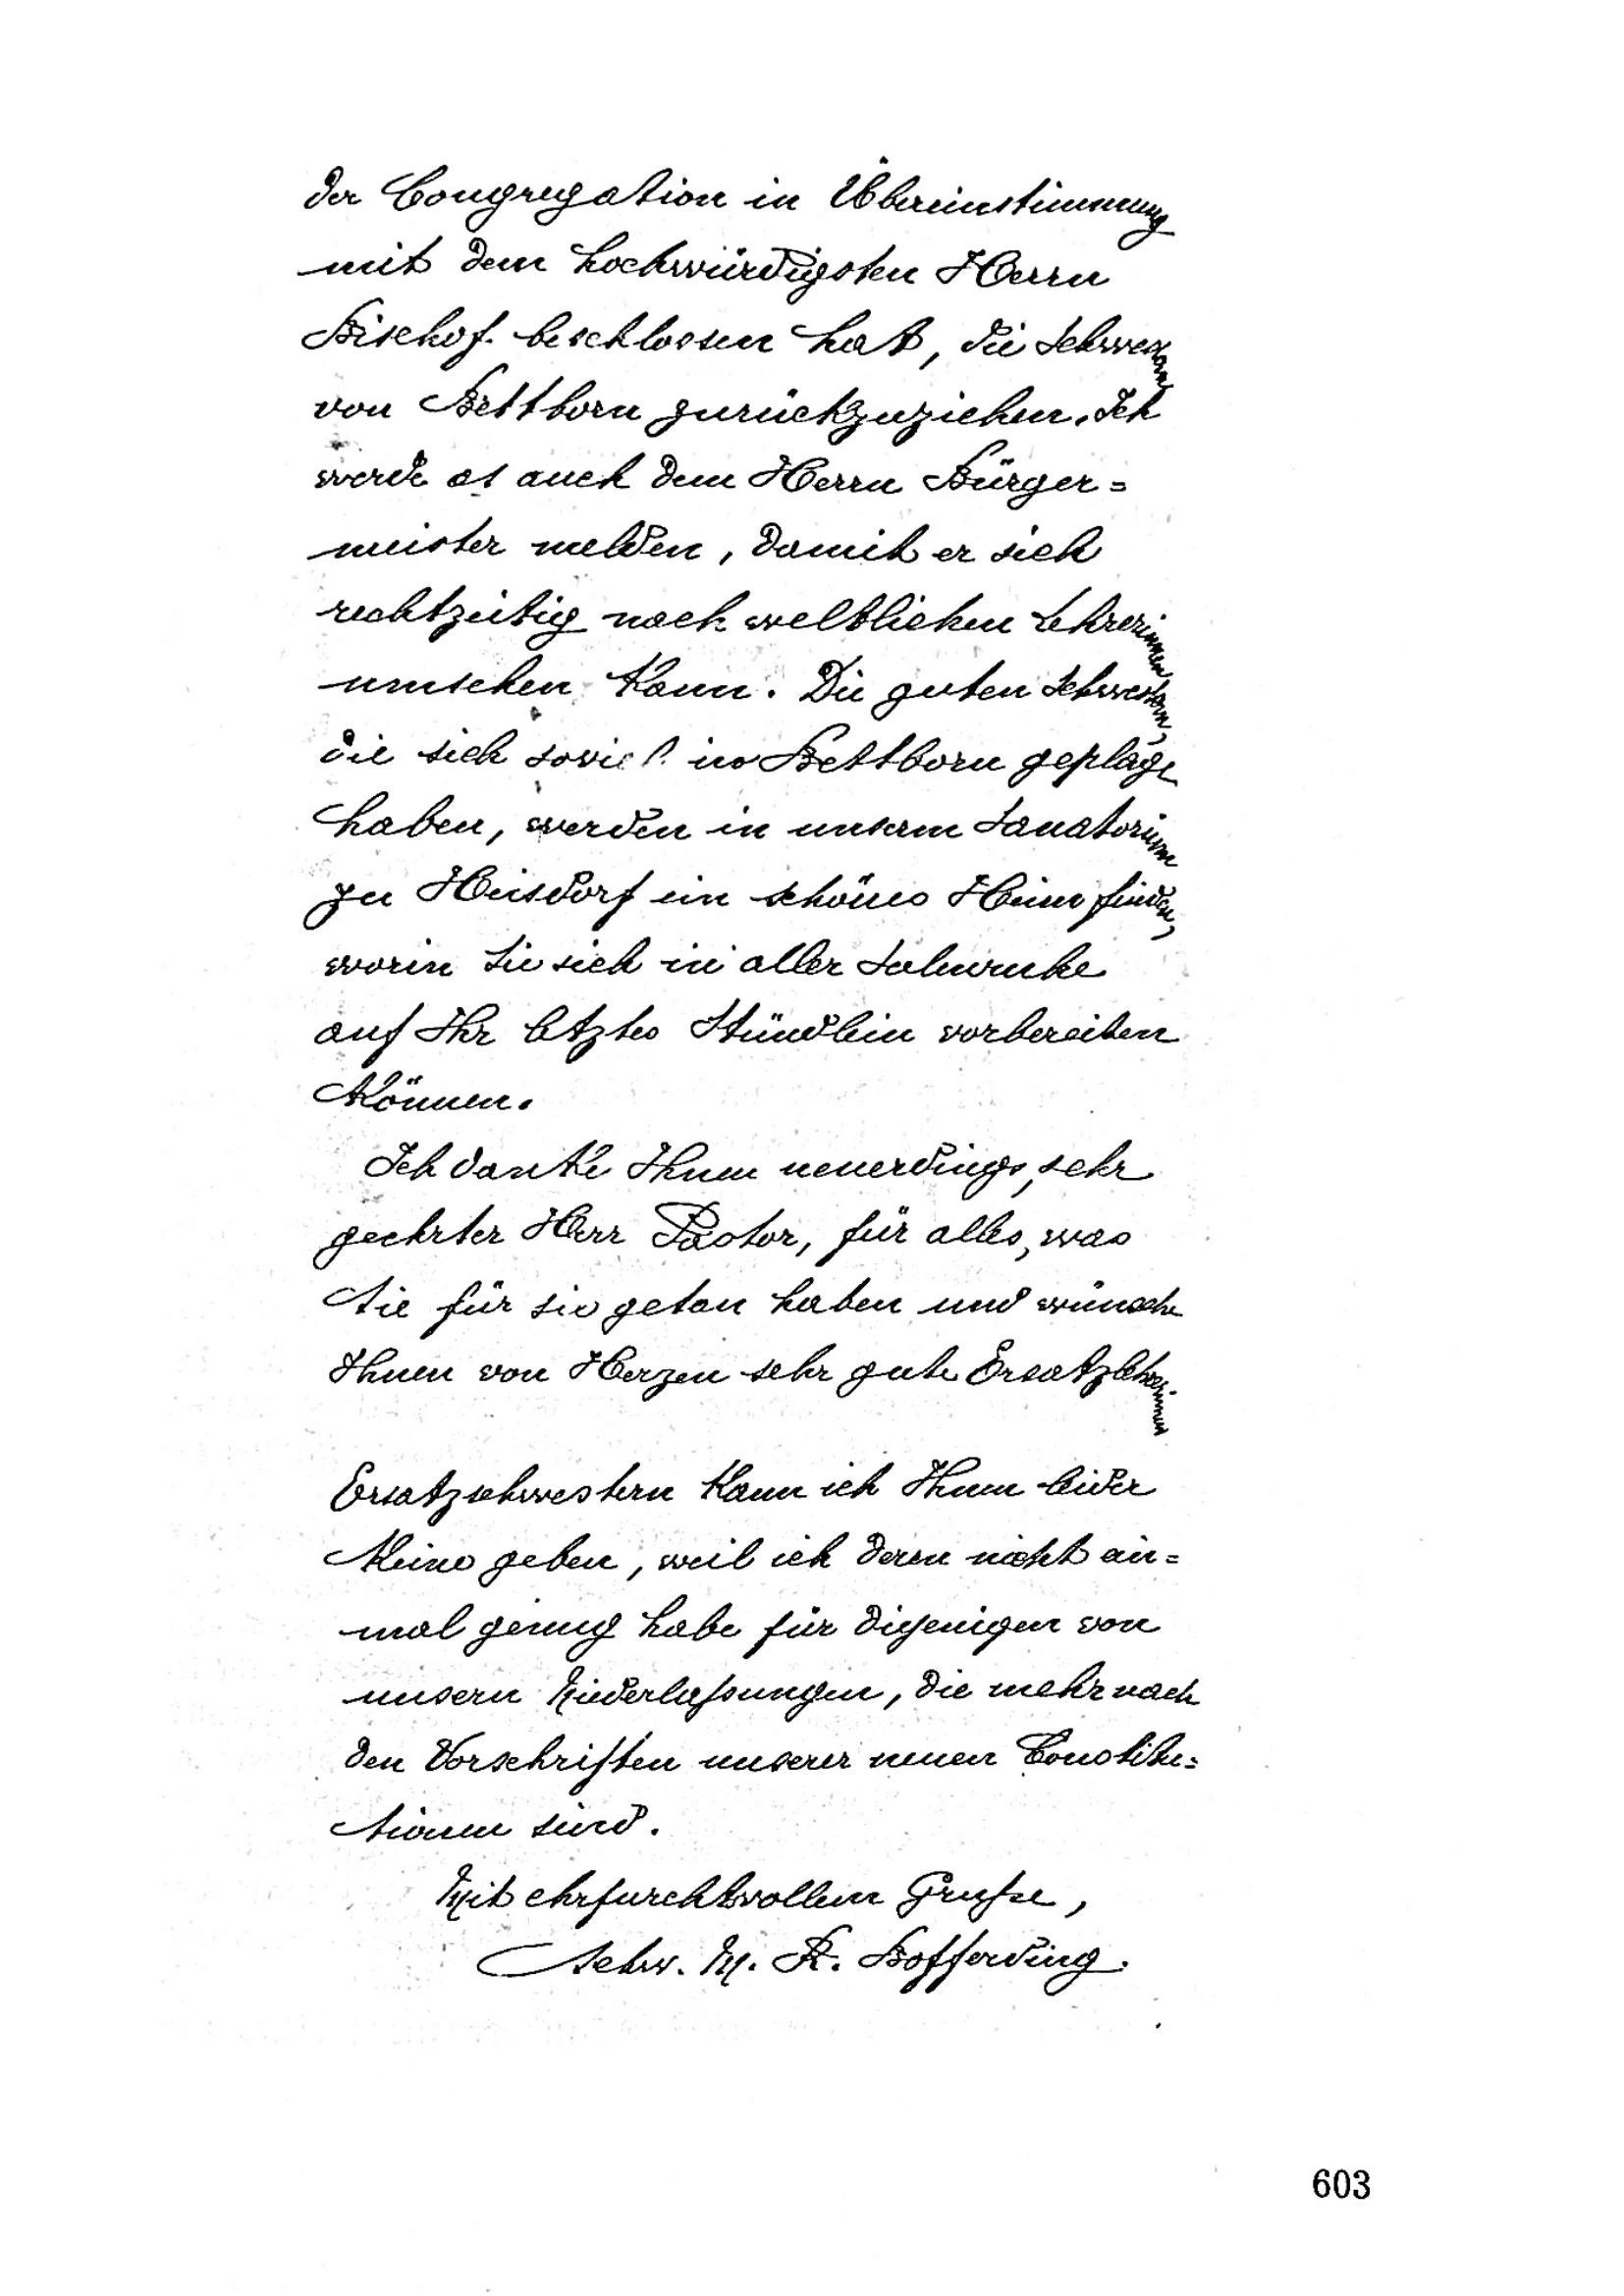 der Congregation in Übereinstimmung
mit dem hochwürdigsten Herrn
Bischof beschlossen hat, die Schwestern
von Bettborn zurückzuziehen. Ich
werde es auch dem Herrn Bürger=
meister melden, damit er sich
rechtzeitig nach weltlichen Lehrerinnen
umsehen kann. Die guten Schwestern,
die sich soviel in Bettborn geplagt
haben, werden in unserm Sanatorium
zu Heisdorf ein schönes Heim finden,
worin Sie sich in aller Seelenruhe
auf Ihr letztes Stündlein vorbereiten
können.
Ich danke Ihnen neuerdings, sehr
geehrter Herr Pastor, für alles, was
Sie für sie getan haben und wünsche
Ihnen von Herzen sehr gute Ersatzlehrerinnen
Ersatzschwestern kann ich Ihnen leider
keine geben, weil ich deren nicht ein=
mal genug habe für diejenigen von
unsern Niederlaßungen, die mehr nach
den Vorschriften unserer neuen Constitu=
tionen sind.
Mit ehrfurchtsvollem Gruße,
Schw. M. R. Bofferding.
603